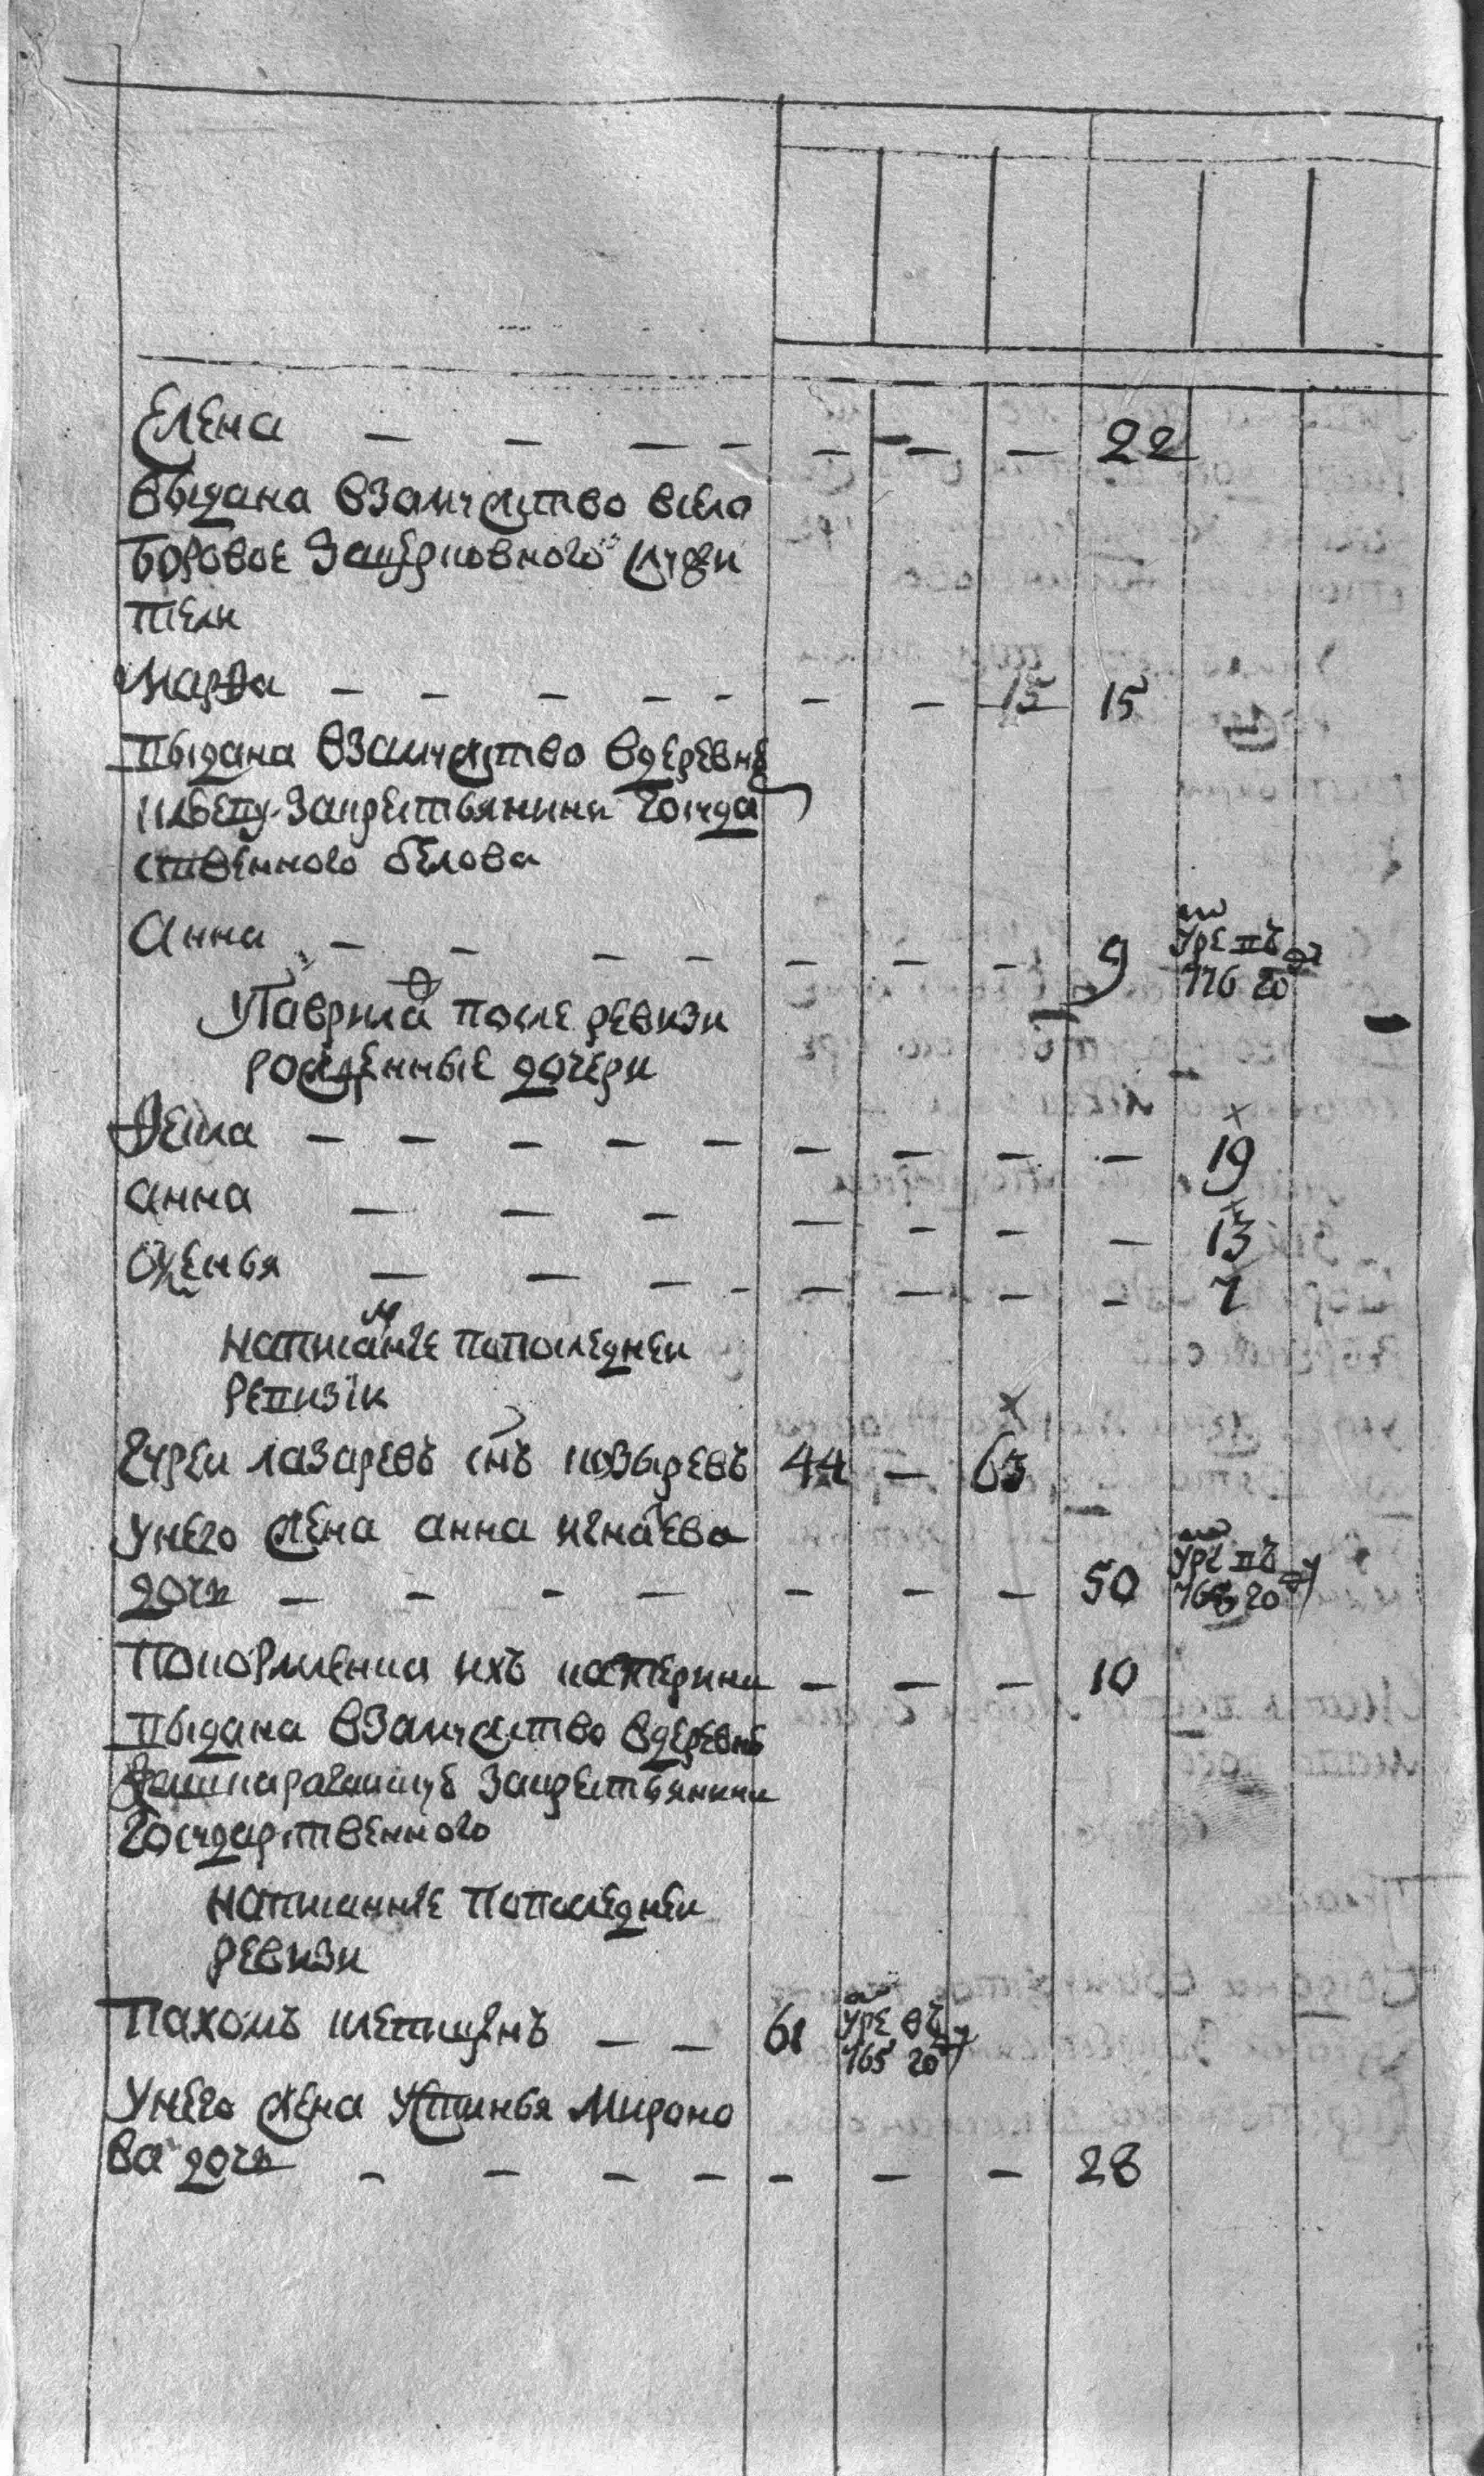 Елена — — — — — — — 22
выдана взамужство всело
боровое зацерковного служи
тели
Марѳа — — — — — — — 15 15
выдана взамужство вдеревню
закрестьянина Госуда
ственного белова
Анна — — — — — — — 9 умре въ 776 го
УГаврила после ревизи
рожденные дочери
Ѳекла — — — — — — — — — 19
анна — — — — — — — 13
Ѳженья — — — — — — — — 7
написанне попоследнеи
ревизїи
Гуреи лазаревъ снъ козыревъ 44 — 63
унего жена анна игнатева
дочь — — — — — — — 50 умре въ 768 го
покормленца ихъ катерина — — — 10
выдана взамужство вдеревню
закрестьянина
Государственного
написанние попоследнеи
ревизи
Пахомъ — — 61 умре въ 765 го
унего жена устинья мироно
ва дочь — — — — — — — 28